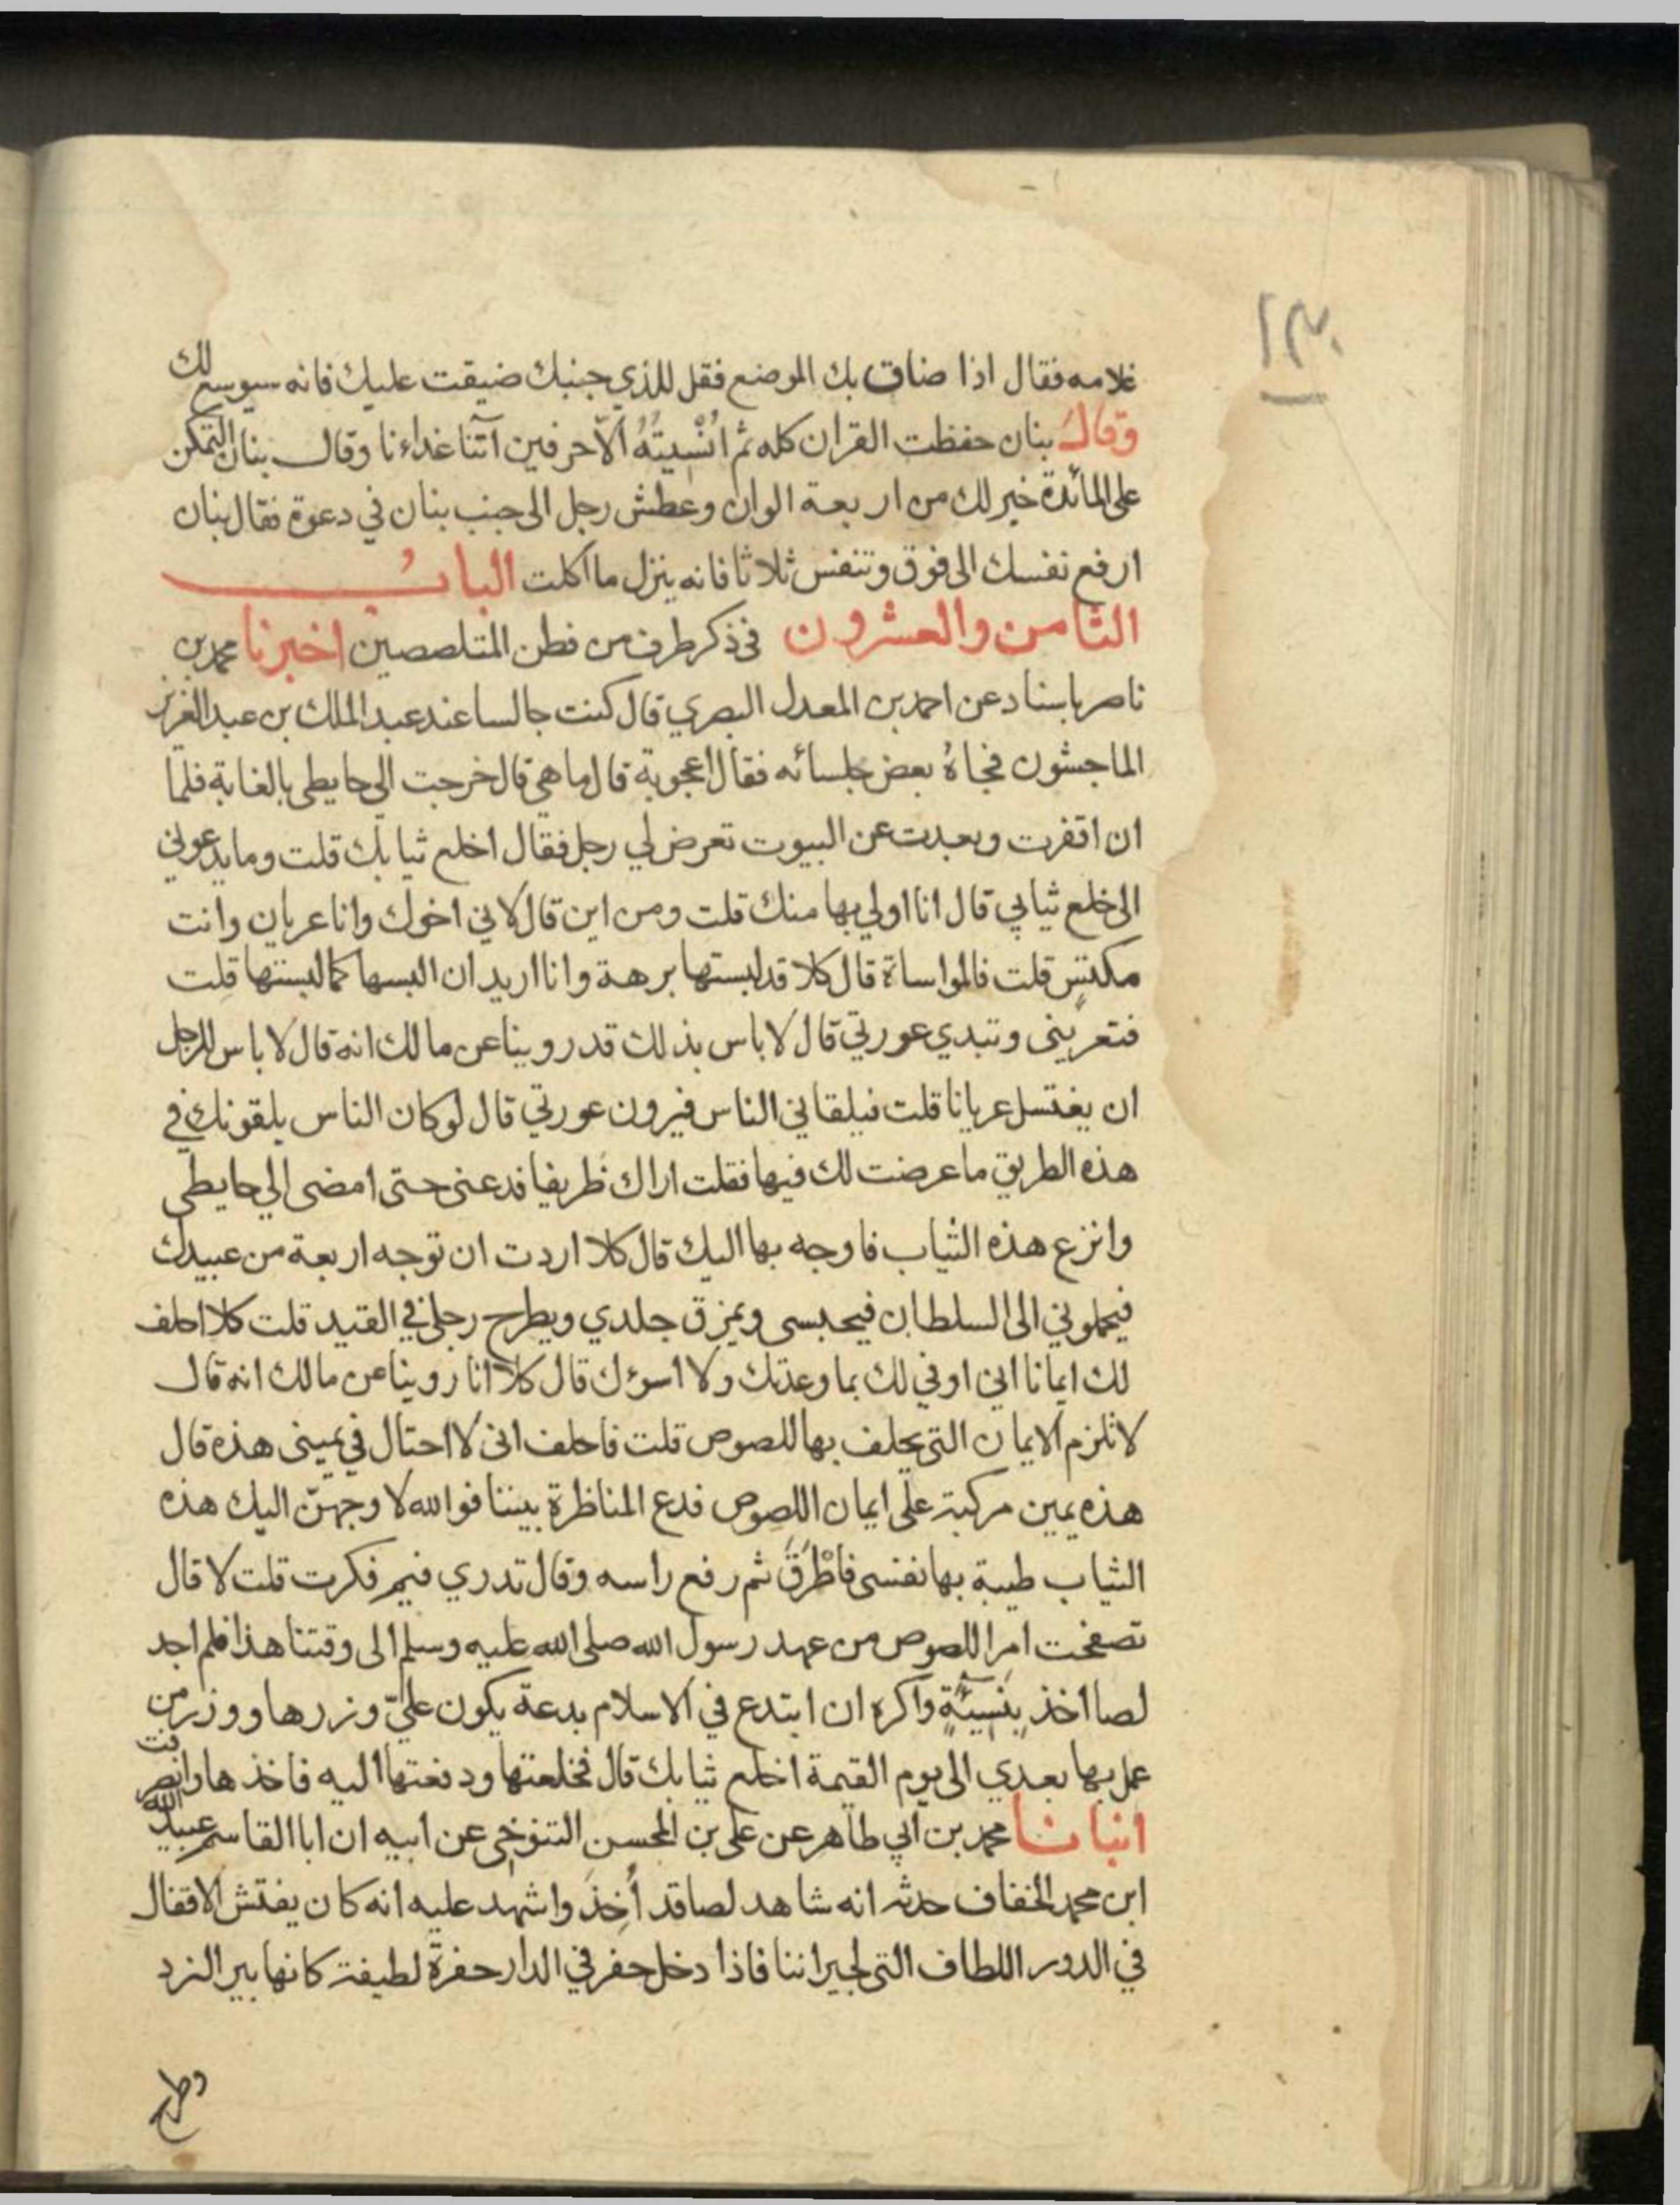 غلامه فقال اذا ضاق بك الموضع فقل للذي جنبك ضيقت عليك فانه سيوسع لك
وقال بنان حفظت القران كله ثم انْسِيتُهُ الّا حرفين آتنا غداءنا وقال بنان التمكن
على المائدة خير لك من اربعة الوان وعطش رجل الى جنب بنان في دعوة فقال بنان
ارفع نفسك الى فوق وتنفس ثلاثا فانه ينزل ما اكلت البابُ
الثامن والعشرون في ذكر طرف من فطن المتلصصين اخبرنا محمد بن
ناصر باسناد عن احمد بن المعدل البصري قال كنت جالسا عند عبد الملك بن عبد العزيز
الماجشون فجاهُ بعض جلسائه فقال اعجوبة قال ما هي قال خرجت الي حايطي بالغابة فلما
ان اقفرت وبعدت عن البيوت تعرض لي رجل فقال اخلع ثيابك قلت وما يدعوني
الى خلع ثيابي قال انا اولي بها منك قلت ومن اين قال لاني اخوك وانا عريان وانت
مكتسٍ قلت فالمواساة قال كلا قد لبستها برهة وانا اريد ان البسها كما لبستها قلت
فتعريني وتبدي عورتي قال لا باس بذلك قد روينا عن مالك انه قال لا باس للرجل
ان يغتسل عريانا قلت فيلقاني الناس فيرون عورتي قال لو كان الناس يلقونك في
هذه الطريق ما عرضت لك فيها فقلت اراك ظريفا فدعنى حتى امضى الي حايطي
وانزع هذه الثياب فاوجه بها اليك قال كلا اردت ان توجه اربعة من عبيدك
فيحملوني الى السلطان فيحبسى ويمزق جلدي ويطرح رجلى في القيد قلت كلا احلف
لك ايمانا اني اوفي لك بما وعدتك ولا اسوءك قال كلا انا روينا عن مالك انه قال
لا تلزم الايمان التى يحلف بها للصوص قلت فاحلف انى لا احتال في يمينى هذه قال
هذه يمين مركبة على ايمان اللصوص فدع المناظرة بيننا فوالله لاوجهنّ اليك هذه
الثياب طيبة بها نفسى فاطْرَقَ ثم رفع راسه وقال تدري فيم فكرت قلت لا قال
تصفحت امر اللصوص من عهد رسول الله صلى الله عليه وسلم الى وقتنا هذا فلم اجد
لصا اخذ بِنَسِيئَةٍ واكره ان ابتدع في الاسلام بدعة يكون عليّ وزرها ووزر من
عمل بها بعدي الى يوم القيمة اخلع ثيابك قال فخلعتها ودفعتها اليه فاخذها وانصرفت
انبانا محمد بن ابي طاهر عن على بن المحسن التنوخي عن ابيه ان ابا القاسم عبيد الله
ابن محمد الخفاف حدثه انه شاهد لصا قد أُخِذَ واشهد عليه انه كان يفتش الاقفال
في الدور اللطاف التى لجيراننا فاذا دخل حفر في الدار حفرة لطيفة كانها بير النرد
وطرح